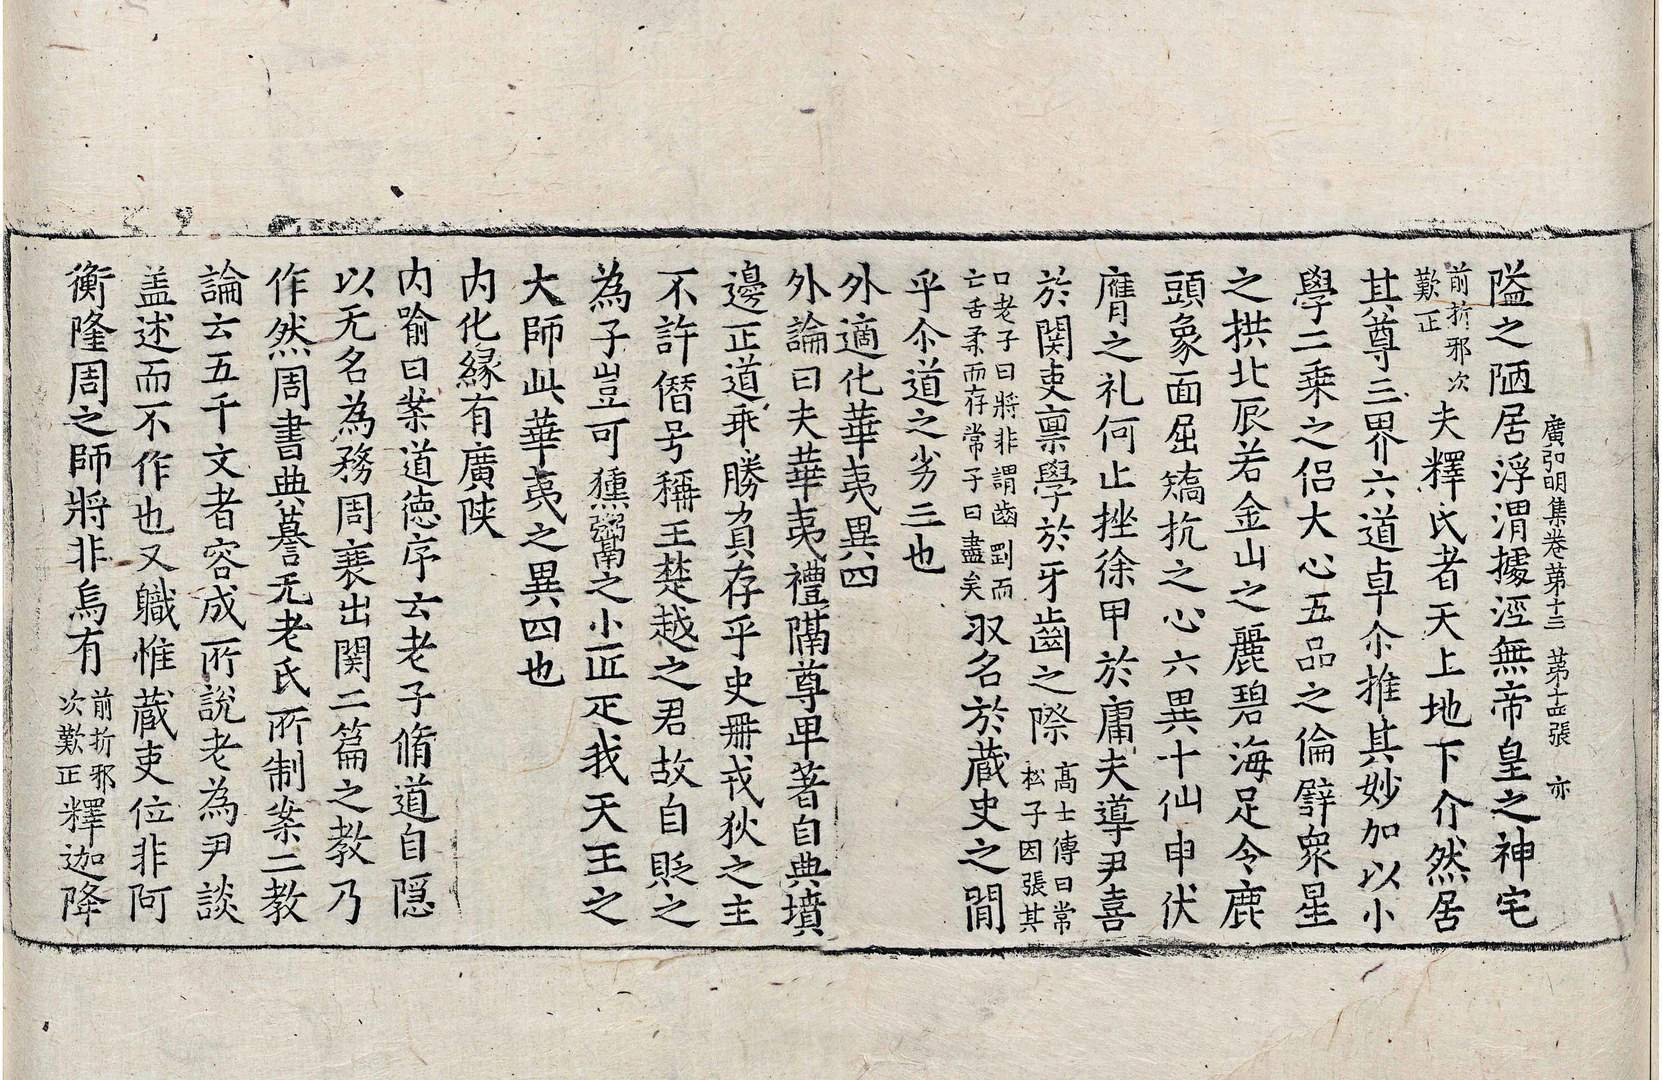 廣弘明集卷第十三 第十四張 亦
隘之陋居浮渭據涇無帝皇之神宅
前折邪次歎正夫釋氏者天上地下介然居
其尊三界六道卓尒推其妙加以小
學二乗之侣大心五品之倫譬衆星
之拱北辰若金山之麗碧海足令鹿
頭象面屈矯抗之心六異十仙申伏
膺之礼何止挫徐甲於庸夫導尹喜
於関吏禀學於牙齒之際高士傳曰常松子因張其
口老子曰將非謂齒剛而亡舌柔而存常子曰盡矣𠬧名於蔵史之閒
乎尒道之劣三也
外適化華夷異四
外論曰夫華夷禮隔尊卑著自典墳
邊正道乖勝負存乎史册戎狄之主
不許僭号稱王楚越之君故自貶之
為子豈可獯鬻之小匹疋我天王之
大師此華夷之異四也
内化縁有廣陕
内喻曰案道徳序云老子脩道自隠
以无名為務周衰出関二篇之教乃
作然周書典謩无老氏所制案二教
論云五千文者容成所說老為尹談
盖述而不作也又職惟蔵吏位非阿
衡隆周之師將非烏有前折邪次歎正釋迦降